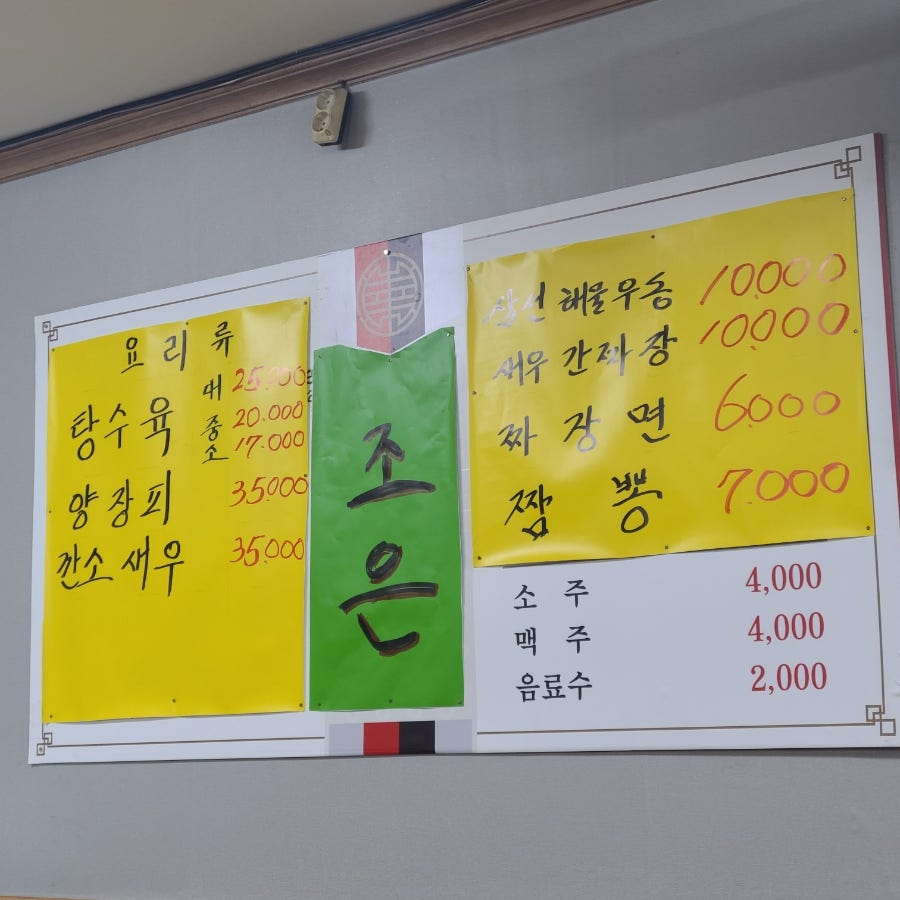 요리류
탕수육 대 25.000
중 20.000
소 17.000
양장피 35.000
깐소새우 35.000
조은
삼선 해물우동 10.000
새우 간짜장 10.000
짜장면 6.000
짬뽕 7.000
소주 4,000
맥주 4,000
음료수 2,000